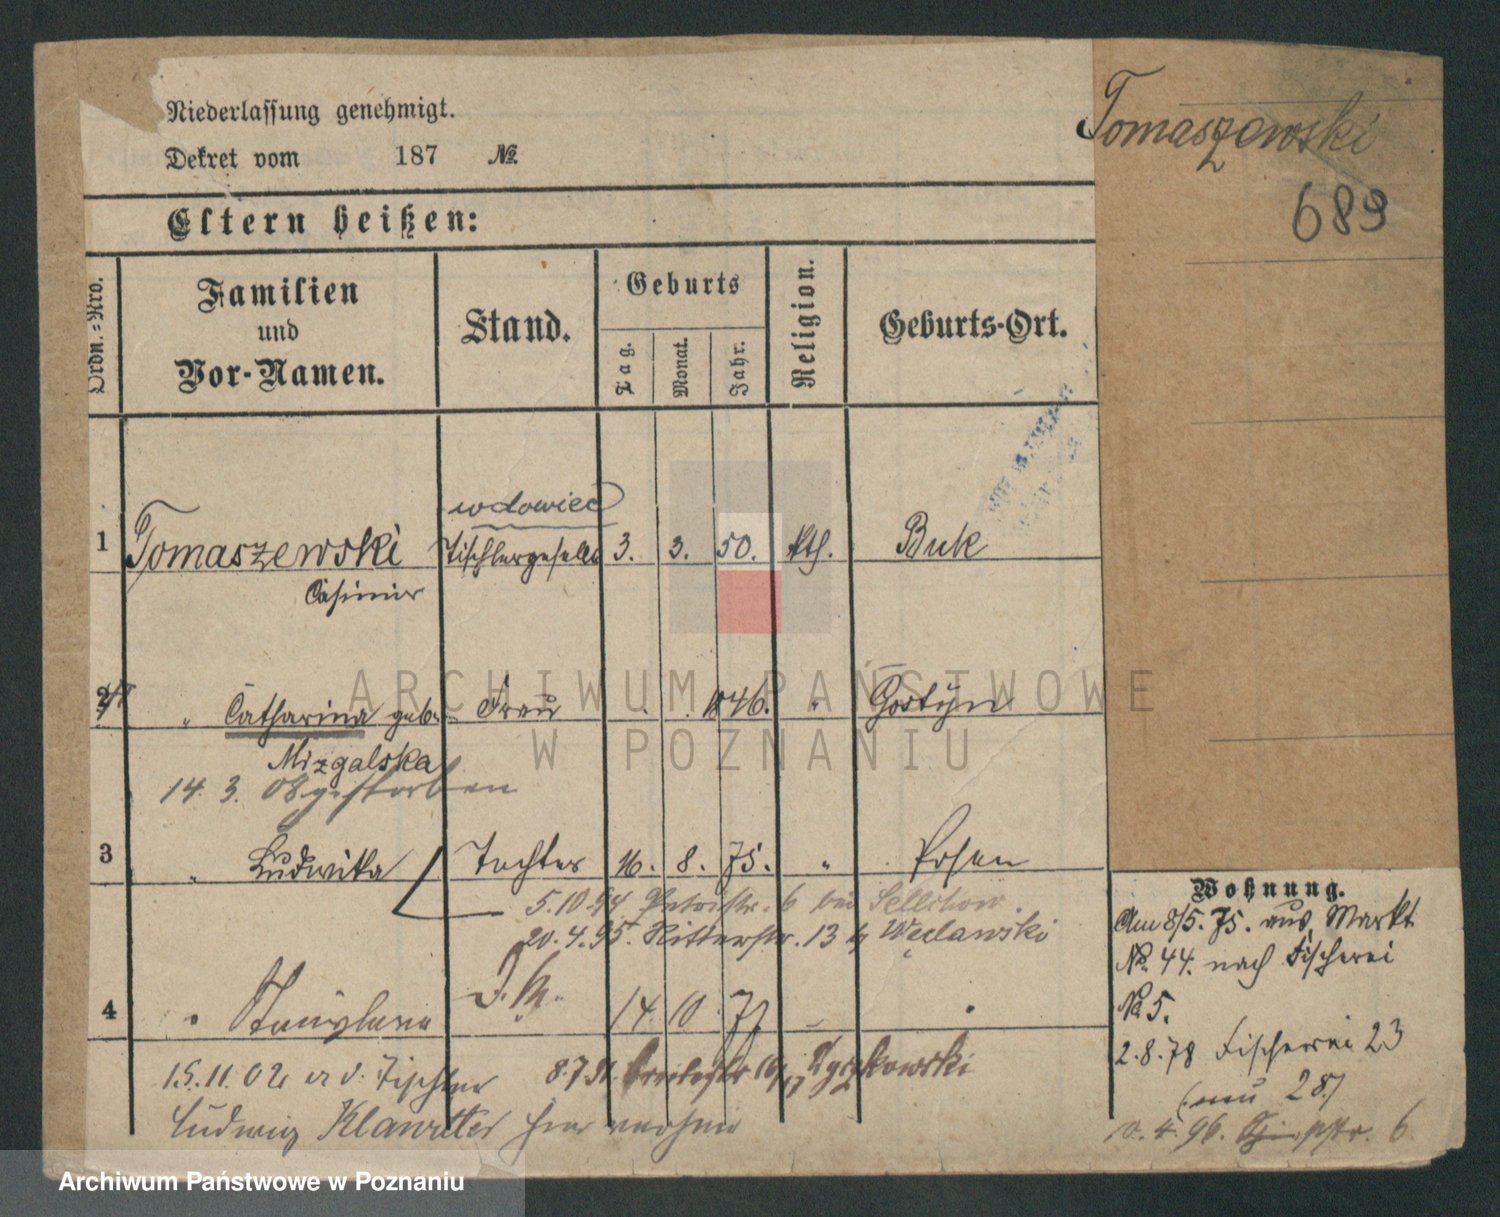 Niederlassung genehmigt.
Dekret vom 187 №
Tomaszewski
689
Eltern heißen:
Ordn.=Nro.
Familien
und
Vor-Namen.
Stand.
Geburts
Tag.
Monat.
Jahr.
Religion.
Geburts-Ort.
wdowiec
1 Tomaszewski Tischlergeselle 3. 3. 50. kth. Buk
Casimir
2 " Catharina geb. Frau 1846. " Gostyn
Mizgalska
14. 3. 08 gestorben
3 " Ludwika Tochter 16. 8. 75. " Posen
5.10.94. 6 bei
20.4.95. Ritterstr. 13 Węclawski
4 " 14 10 77
15.11.02 Tischler 8.7.
Ludwig Klawitter hier
Wohnung.
Am 8/5. 75. aus Markt
No. 44. nach Fischerei
No 5.
2.8.78 Fischerei 23
(neu 28)
4.96. 6
ARCHIWUM PAŃSTWOWE
W POZNANIU
Archiwum Państwowe w Poznaniu